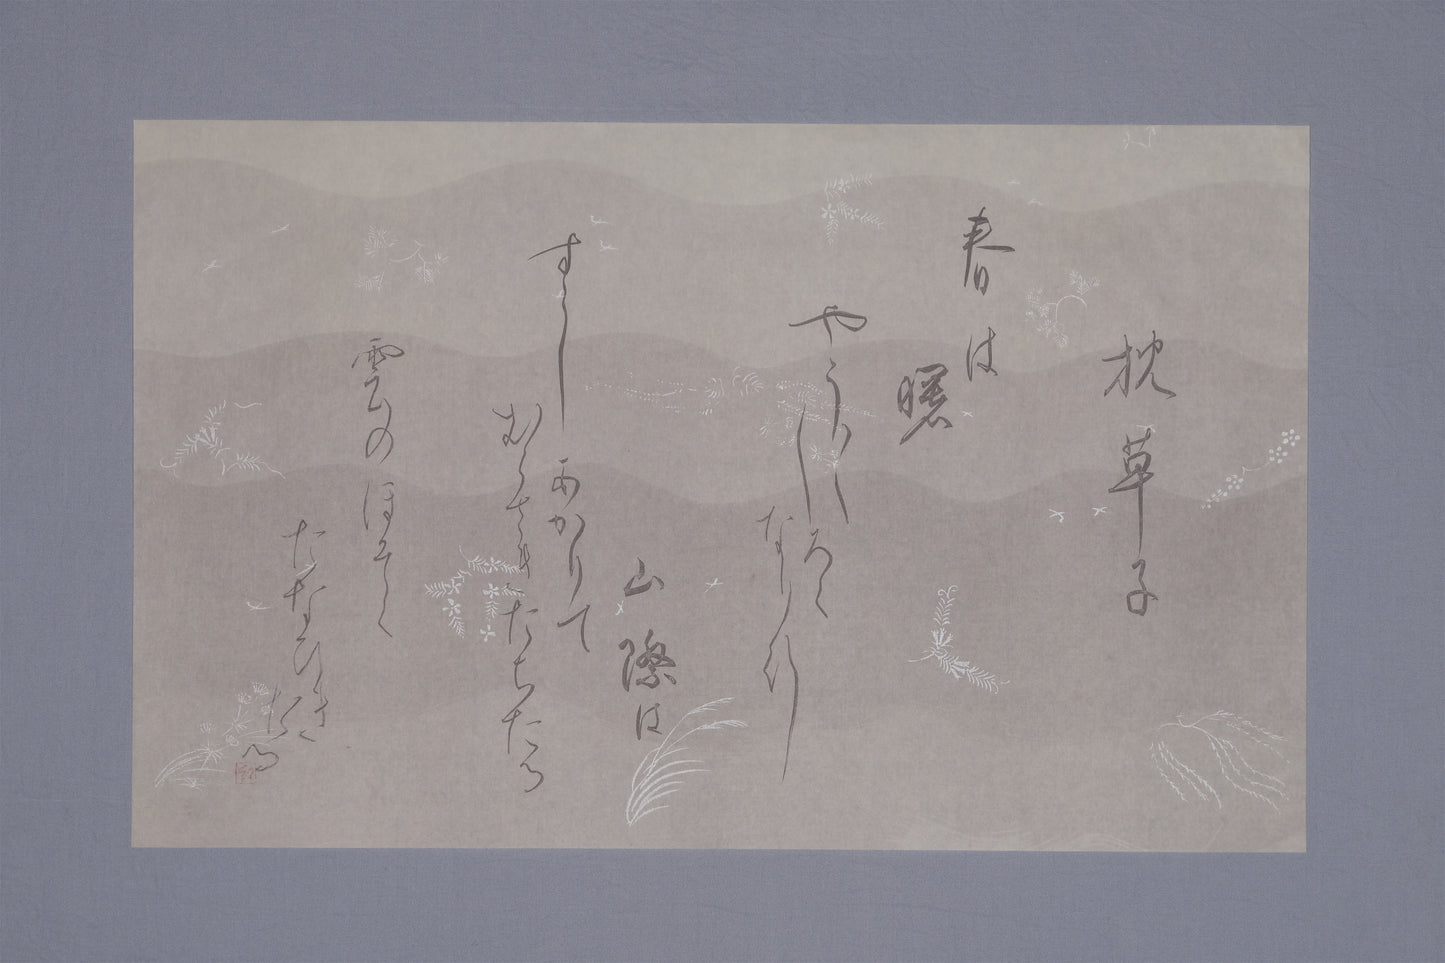 枕草子
春は
曙
やう〳〵しろく
なり行
山際は
すこしあかりて
むらさきたちたる
雲のほそく
たなひき
たる